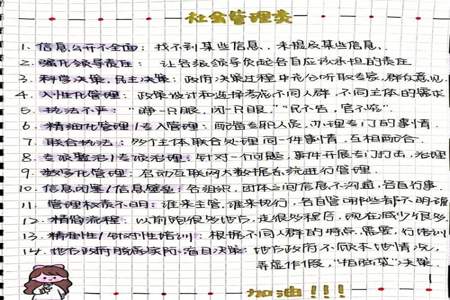 社会管理类
1. 信息公开不全面：找不到某些信息、未提及某些信息.
2. 强化领导责任：让各级领导负起各自应该承担的责任
3. 科学决策,民主决策：政府决策过程中充分听取专家,群众意见
4. 人性化管理：政策设计和选择考虑不同人群,不同主体的需求
5. 执法不严："睁一只眼,闭一只眼","民不告,官不究".
6. 精细化管理/专人管理：配备专职人员,办理专门的事情.
7. 联合执法：多个主体联合处理同一件事情,互相配合.
8. 专项整治/专项治理：针对一个问题,事件开展专门打击,治理
9. 数字化管理：启动互联网大数据系统进行管理.
10. 信息闭塞/信息壁垒：各组织,团体之间信息不沟通,各自行事.
11. 管理权责不明：谁来主管,谁来执行,各自管哪些都不明谓
12. 精简流程：以前跑很多地方,走很多程序,现在减少很多
13. 精准性/针对性培训：根据不同人群的特点,需要,行培训
14. 地方政府脱离实际,盲目决策：地方政府不顾本地情况,
弄虚作假,"拍脑袋"决策.
加油!!!